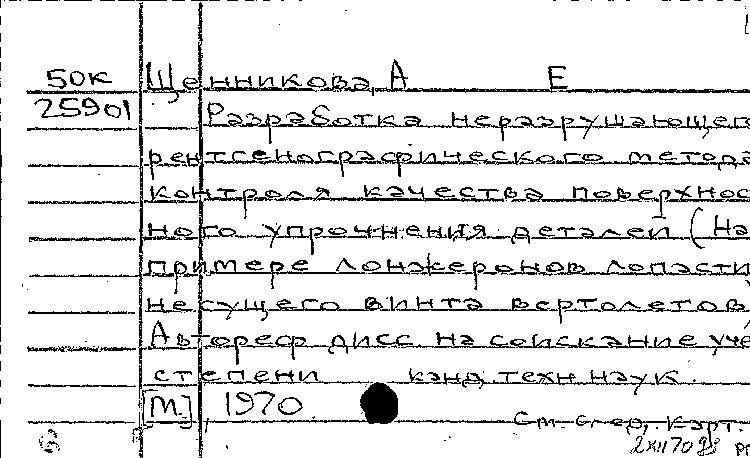 50к Щенникова, А Е
25901 Разработка неразрушающег
рентгенографического метода
контроля качества поверхнос
ного упрочнения деталей (На
примере лонжеронов лопасти
несущего винта вертолетов)
Автореф дисс на соискание уче
степени канд. техн. наук.
[М], 1970.
См. след. карт.